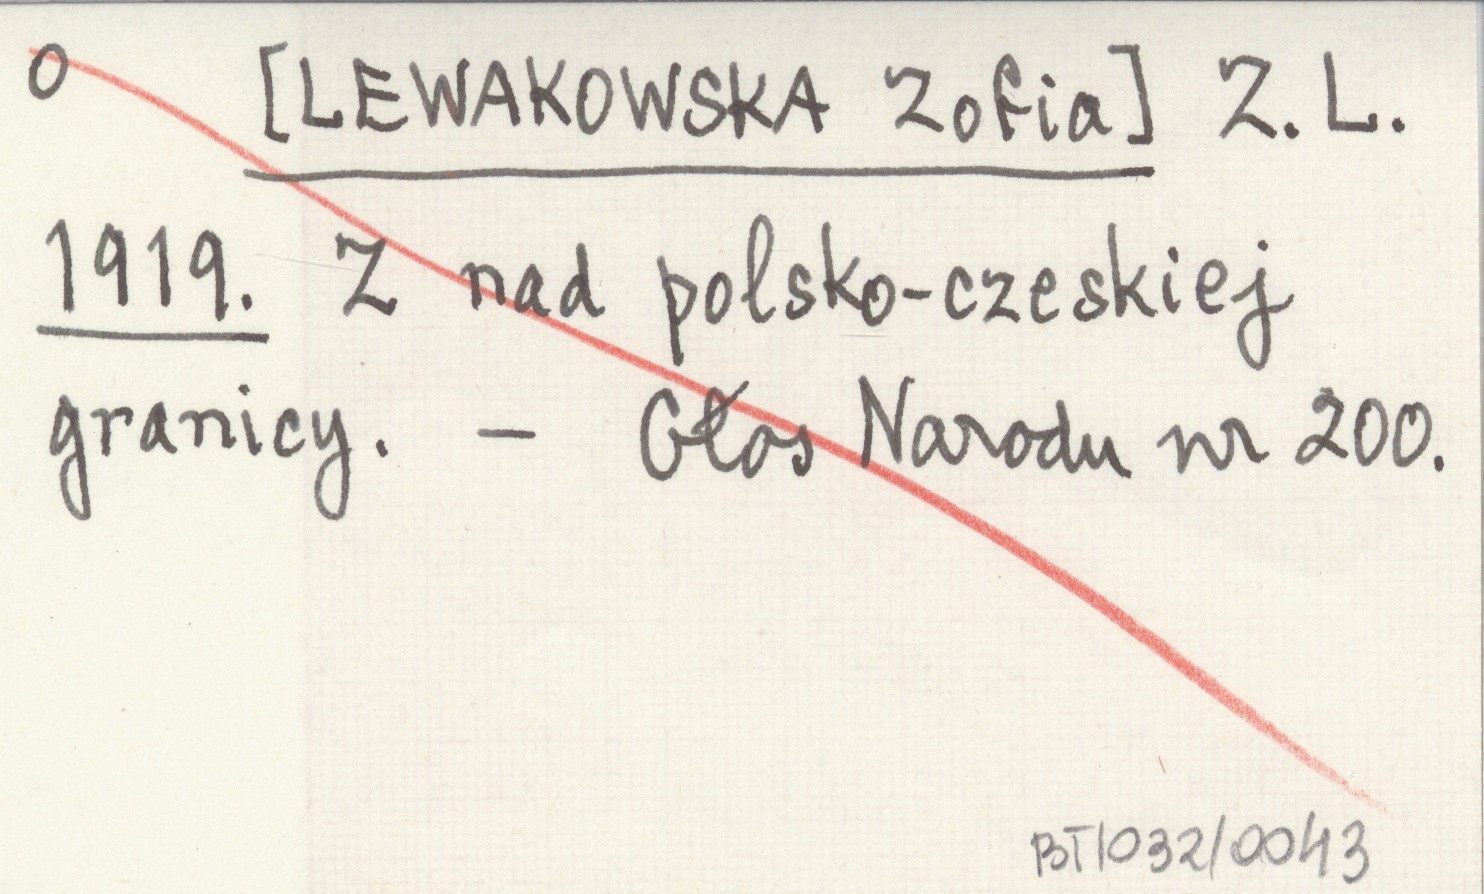 0 [LEWAKOWSKA Zofia] Z. L.
1919. Z nad polsko-czeskiej
granicy. – Głos Narodu nr 200.
BT/032/0043